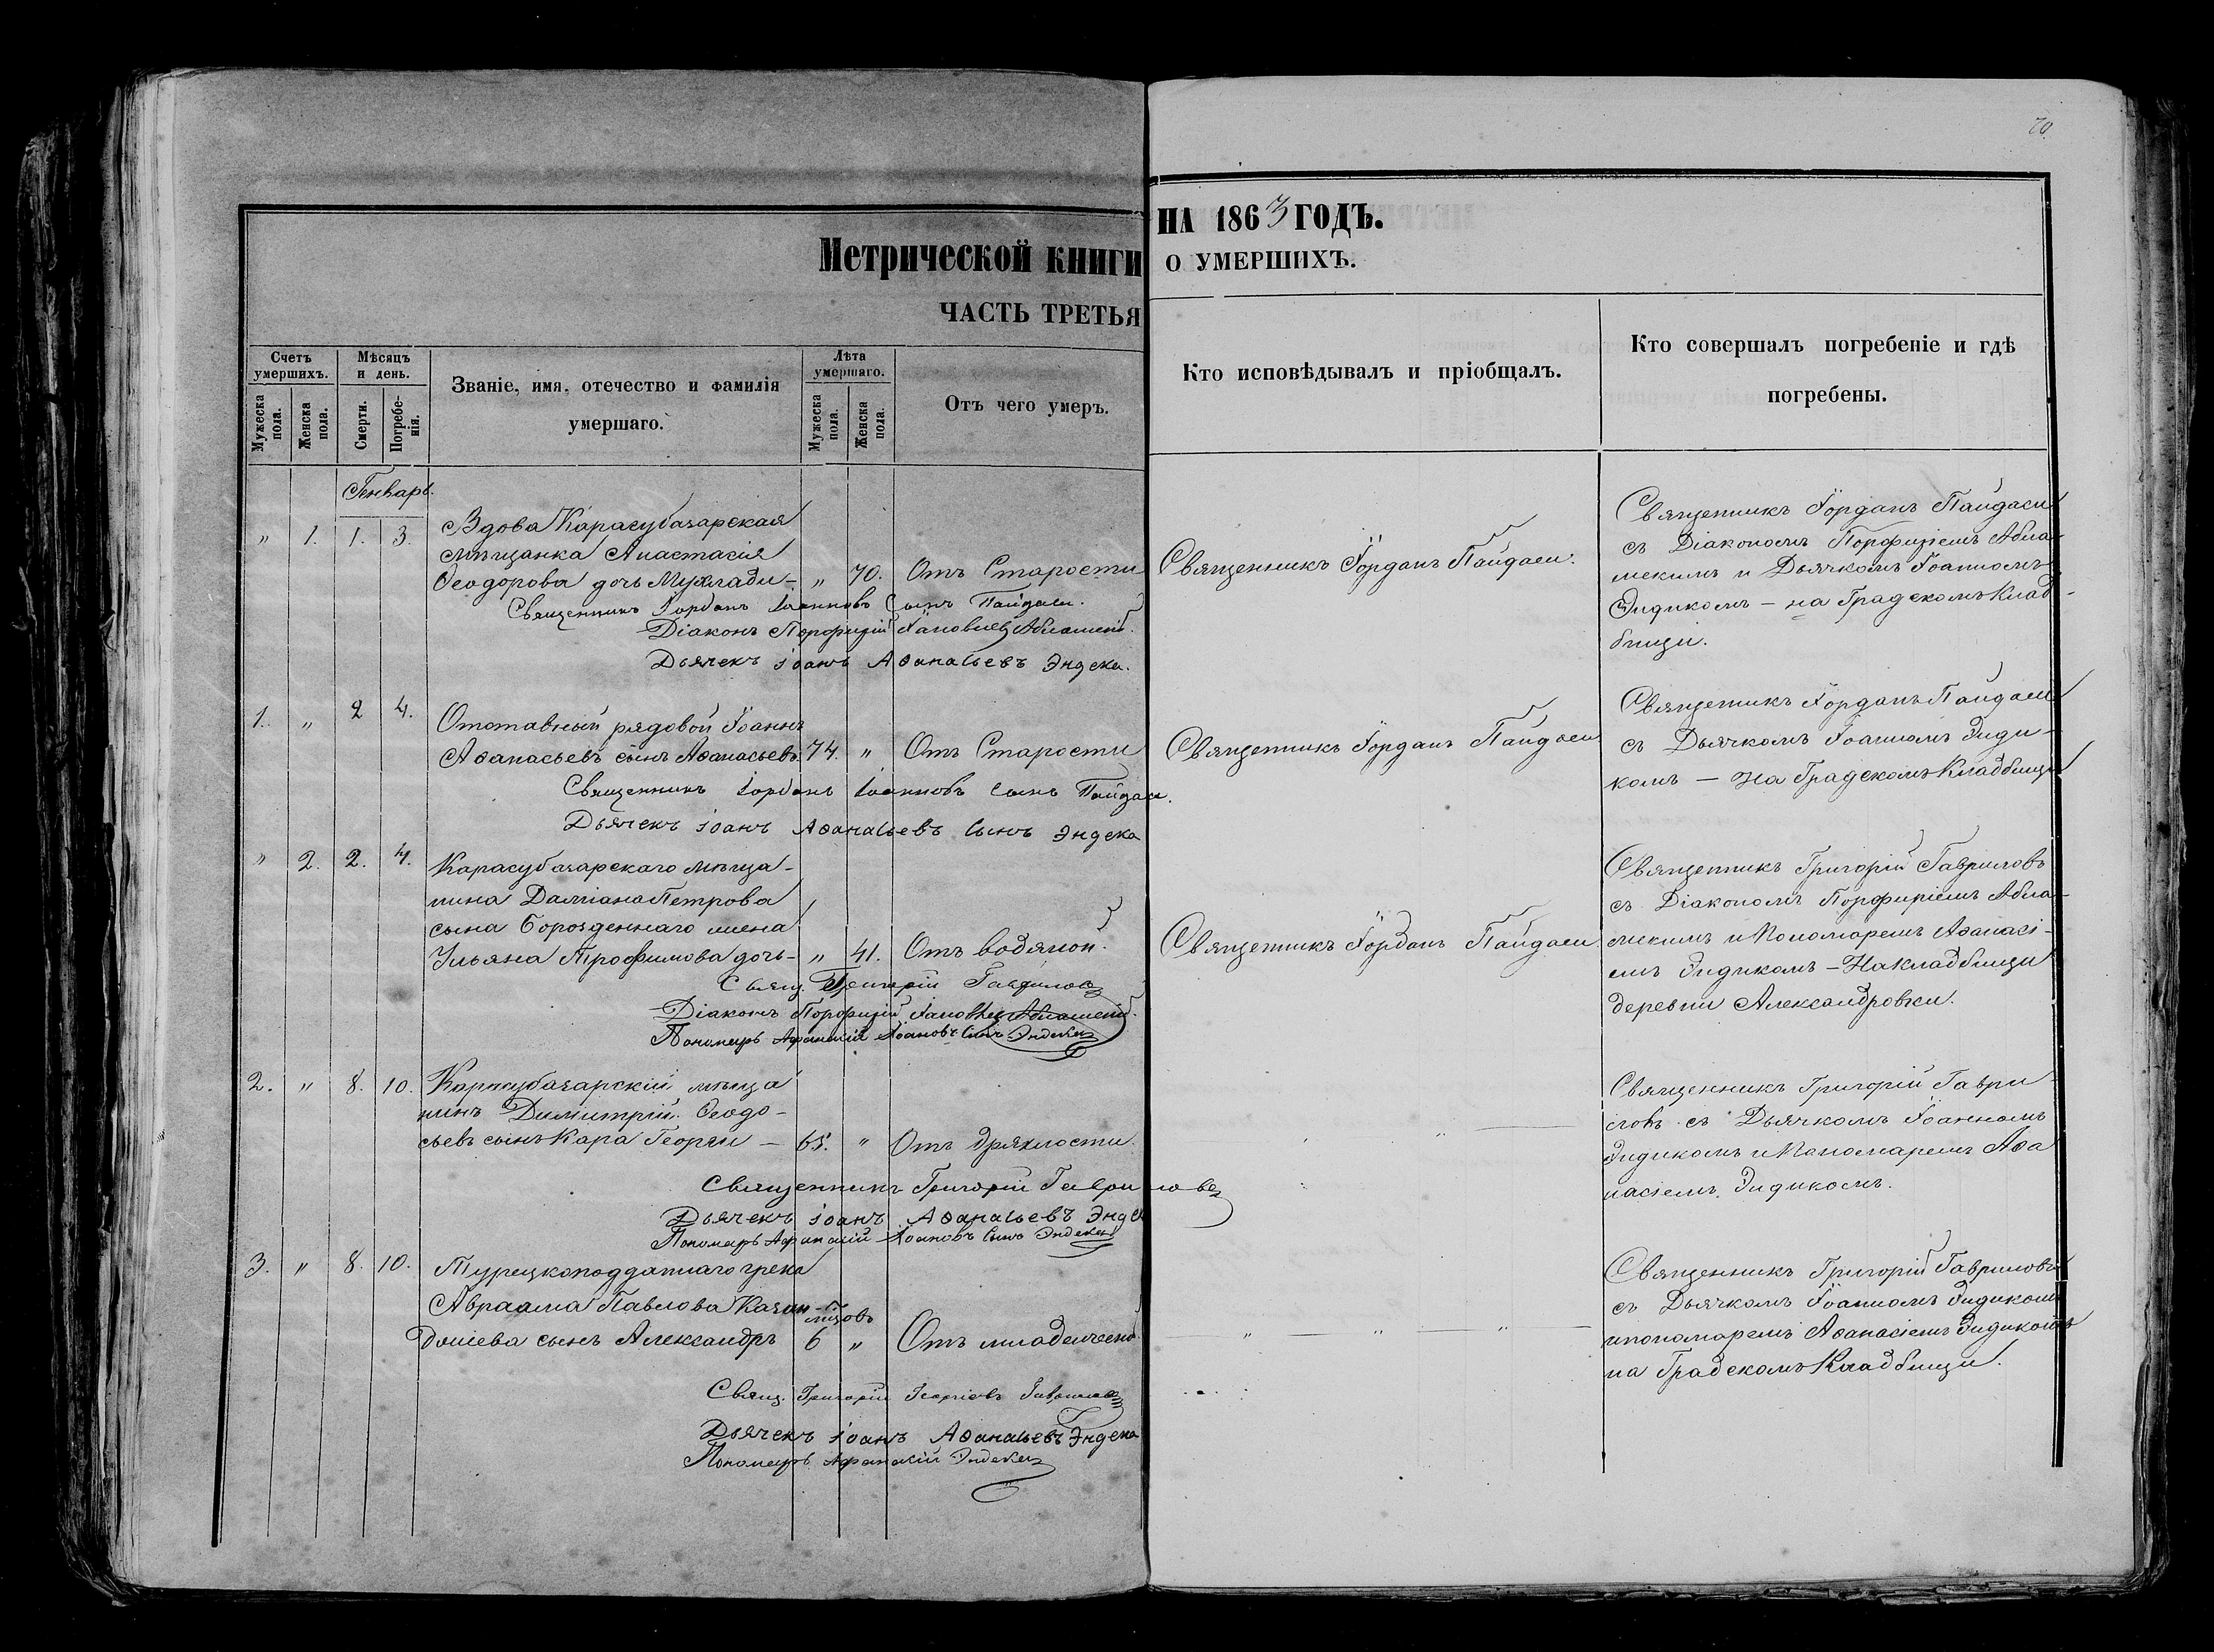 70.
Метрической книги НА 1863 ГОДЪ.
ЧАСТЬ ТРЕТЬЯ О УМЕРШИХЪ.
Счетъ умершихъ.
Мужеска пола.
Женска пола.
Мѣсяцъ и день.
Смерти.
Погребенія.
Званіе, имя, отечество и фамилія
умершаго.
Лѣта умершаго.
Мужеска пола.
Женска пола.
Отъ чего умеръ.
Кто исповѣдывалъ и пріобщалъ.
Кто совершалъ погребеніе и гдѣ
погребены.
Генварь.
" 1. 1. 3.
Вдова Карасубазарская
мѣщанка Анастасія
Ѳеодорова дочь - " 70. Отъ Старости
Священникъ Іорданъ Пайдаси.
Священникъ Іорданъ Пайдаси
съ Діакономъ Порфиріемъ Абла-
мскимъ и Дьячкомъ Іоанномъ
Эндикомъ - на Градскомъ Клад-
бищи.
Священникъ Іорданъ Іоанновъ Сынъ Пайдаси.
Діаконъ Порфирій
Дьячекъ Іоанъ Аѳанасьевъ Эндека.
1. " 2 4.
Отставный рядовой Іоаннъ
Аѳанасьевъ сынъ Аѳанасьевъ 74. " Отъ Старости
Священникъ Іорданъ Пайдаси
Священникъ Іорданъ Пайдаси
съ Дьячкомъ Іоанномъ Энди-
комъ - на Градскомъ Кладбищи
Священникъ Іорданъ Іоанновъ Сынъ Пайдаси.
Дьячекъ Іоанъ Аѳанасьевъ Сынъ Эндека
" 2. 2. 4.
Карасубазарскаго мѣща-
нина Даміана Петрова
сына Борозденнаго жена
Ульяна Трофимова дочь - " 41. Отъ водяной.
Священникъ Іорданъ Пайдаси
Священникъ Григорій Гавриловъ
съ Діакономъ Порфиріемъ Абла-
мскимъ и Пономаремъ Аѳанасі-
емъ Эндикомъ - На Кладбищи
деревни Александровки.
Свящ. Григорій Гавриловъ
Діаконъ Порфирій
Пономарь Афанасій Іоановъ Сынъ Эндека
2. " 8. 10.
Карасубазарскій мѣща
нинъ Димитрій Ѳеодо-
сьевъ сынъ Кара Георги - 65. " Отъ дряхлости.
" "
Священникъ Григорій Гаври
ловъ съ Дьячкомъ Іоанномъ
Эндикомъ и Пономаремъ Аѳа
насіемъ Эндикомъ.
Священникъ Григорій Гавриловъ
Дьячекъ Іоанъ Аѳанасьевъ Эндека
Пономарь Афанасій Іоановъ Сынъ Эндека
3. " 8. 10.
Турецкоподданнаго грека
Авраама Павлова
сынъ Александръ 6 " Отъ
" " "
Священникъ Григорій Гавриловъ
съ Дьячкомъ Іоанномъ Эндикомъ
и пономаремъ Аѳанасіемъ Эндикомъ
на Градскомъ Кладбищи.
Свящ. Григорій Георгіевъ Гавриловъ
Дьячекъ Іоанъ Аѳанасьевъ Эндека
Пономарь Афанасій Эндека